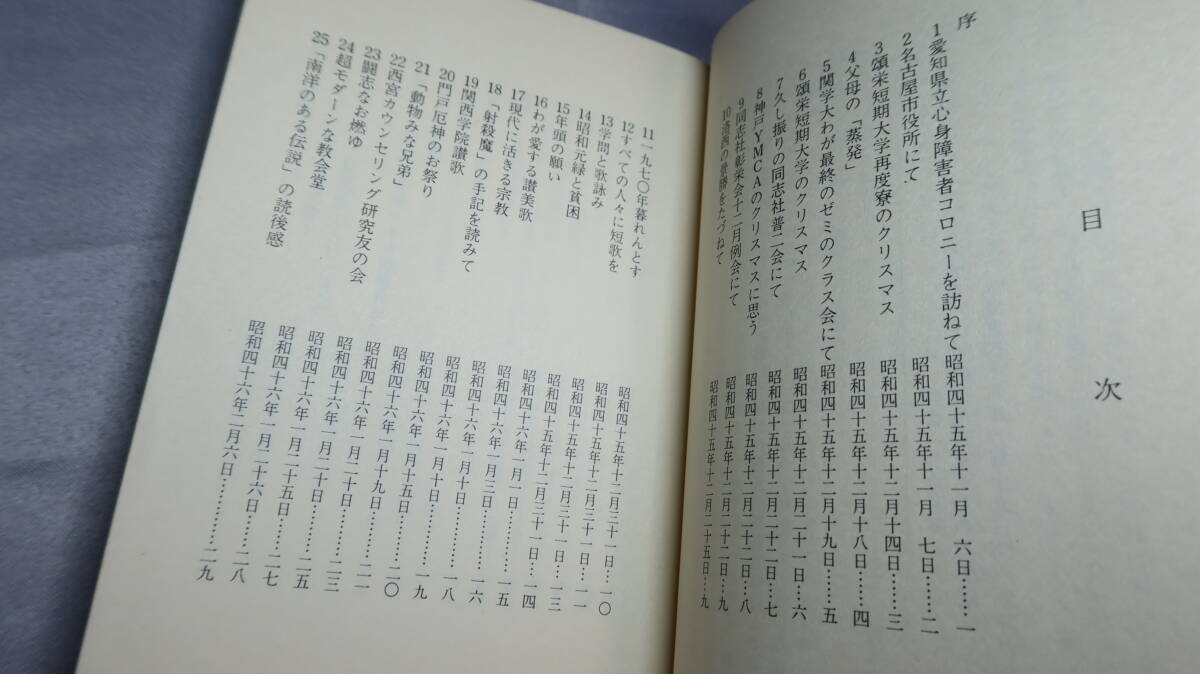 目次
序
1 愛知県立心身障害者コロニーを訪ねて 昭和四十五年十一月 六日……一
2 名古屋市役所にて 昭和四十五年十一月 七日……二
3 頌栄短期大学再度寮のクリスマス 昭和四十五年十二月十四日……三
4 父母の「蒸発」 昭和四十五年十二月十八日……四
5 関学大わが最終のゼミのクラス会にて 昭和四十五年十二月十九日……五
6 頌栄短期大学のクリスマス 昭和四十五年十二月二十一日…六
7 久し振りの同志社普二会にて 昭和四十五年十二月二十二日…七
8 神戸YMCAのクリスマスに思う 昭和四十五年十二月二十二日…八
9 同志社彰栄会十二月例会にて 昭和四十五年十二月二十二日…九
10 洛西の景勝をたづねて 昭和四十五年十二月二十五日…九
11 一九七〇年暮れんとす 昭和四十五年十二月三十一日…一〇
12 すべての人々に短歌を 昭和四十五年十二月三十一日…一一
13 学問と歌詠み 昭和四十五年十二月三十一日…一三
14 昭和元禄と貧困 昭和四十五年十二月三十一日…一四
15 年頭の願い 昭和四十六年一月一日…………一五
16 わが愛する讃美歌 昭和四十六年一月三日…………一六
17 現代に活きる宗教 昭和四十六年一月十日…………一八
18 「射殺魔」の手記を読みて 昭和四十六年一月十日…………一九
19 関西学院讃歌 昭和四十六年一月十五日………二〇
20 門戸厄神のお祭り 昭和四十六年一月十九日………二一
21 「動物みな兄弟」 昭和四十六年一月二十日………二三
22 西宮カウンセリング研究友の会 昭和四十六年一月二十日………二五
23 闘志なお燃ゆ 昭和四十六年一月二十五日……二七
24 超モダーンな教会堂 昭和四十六年一月二十六日……二八
25 「南洋のある伝説」の読後感 昭和四十六年二月六日…………二九